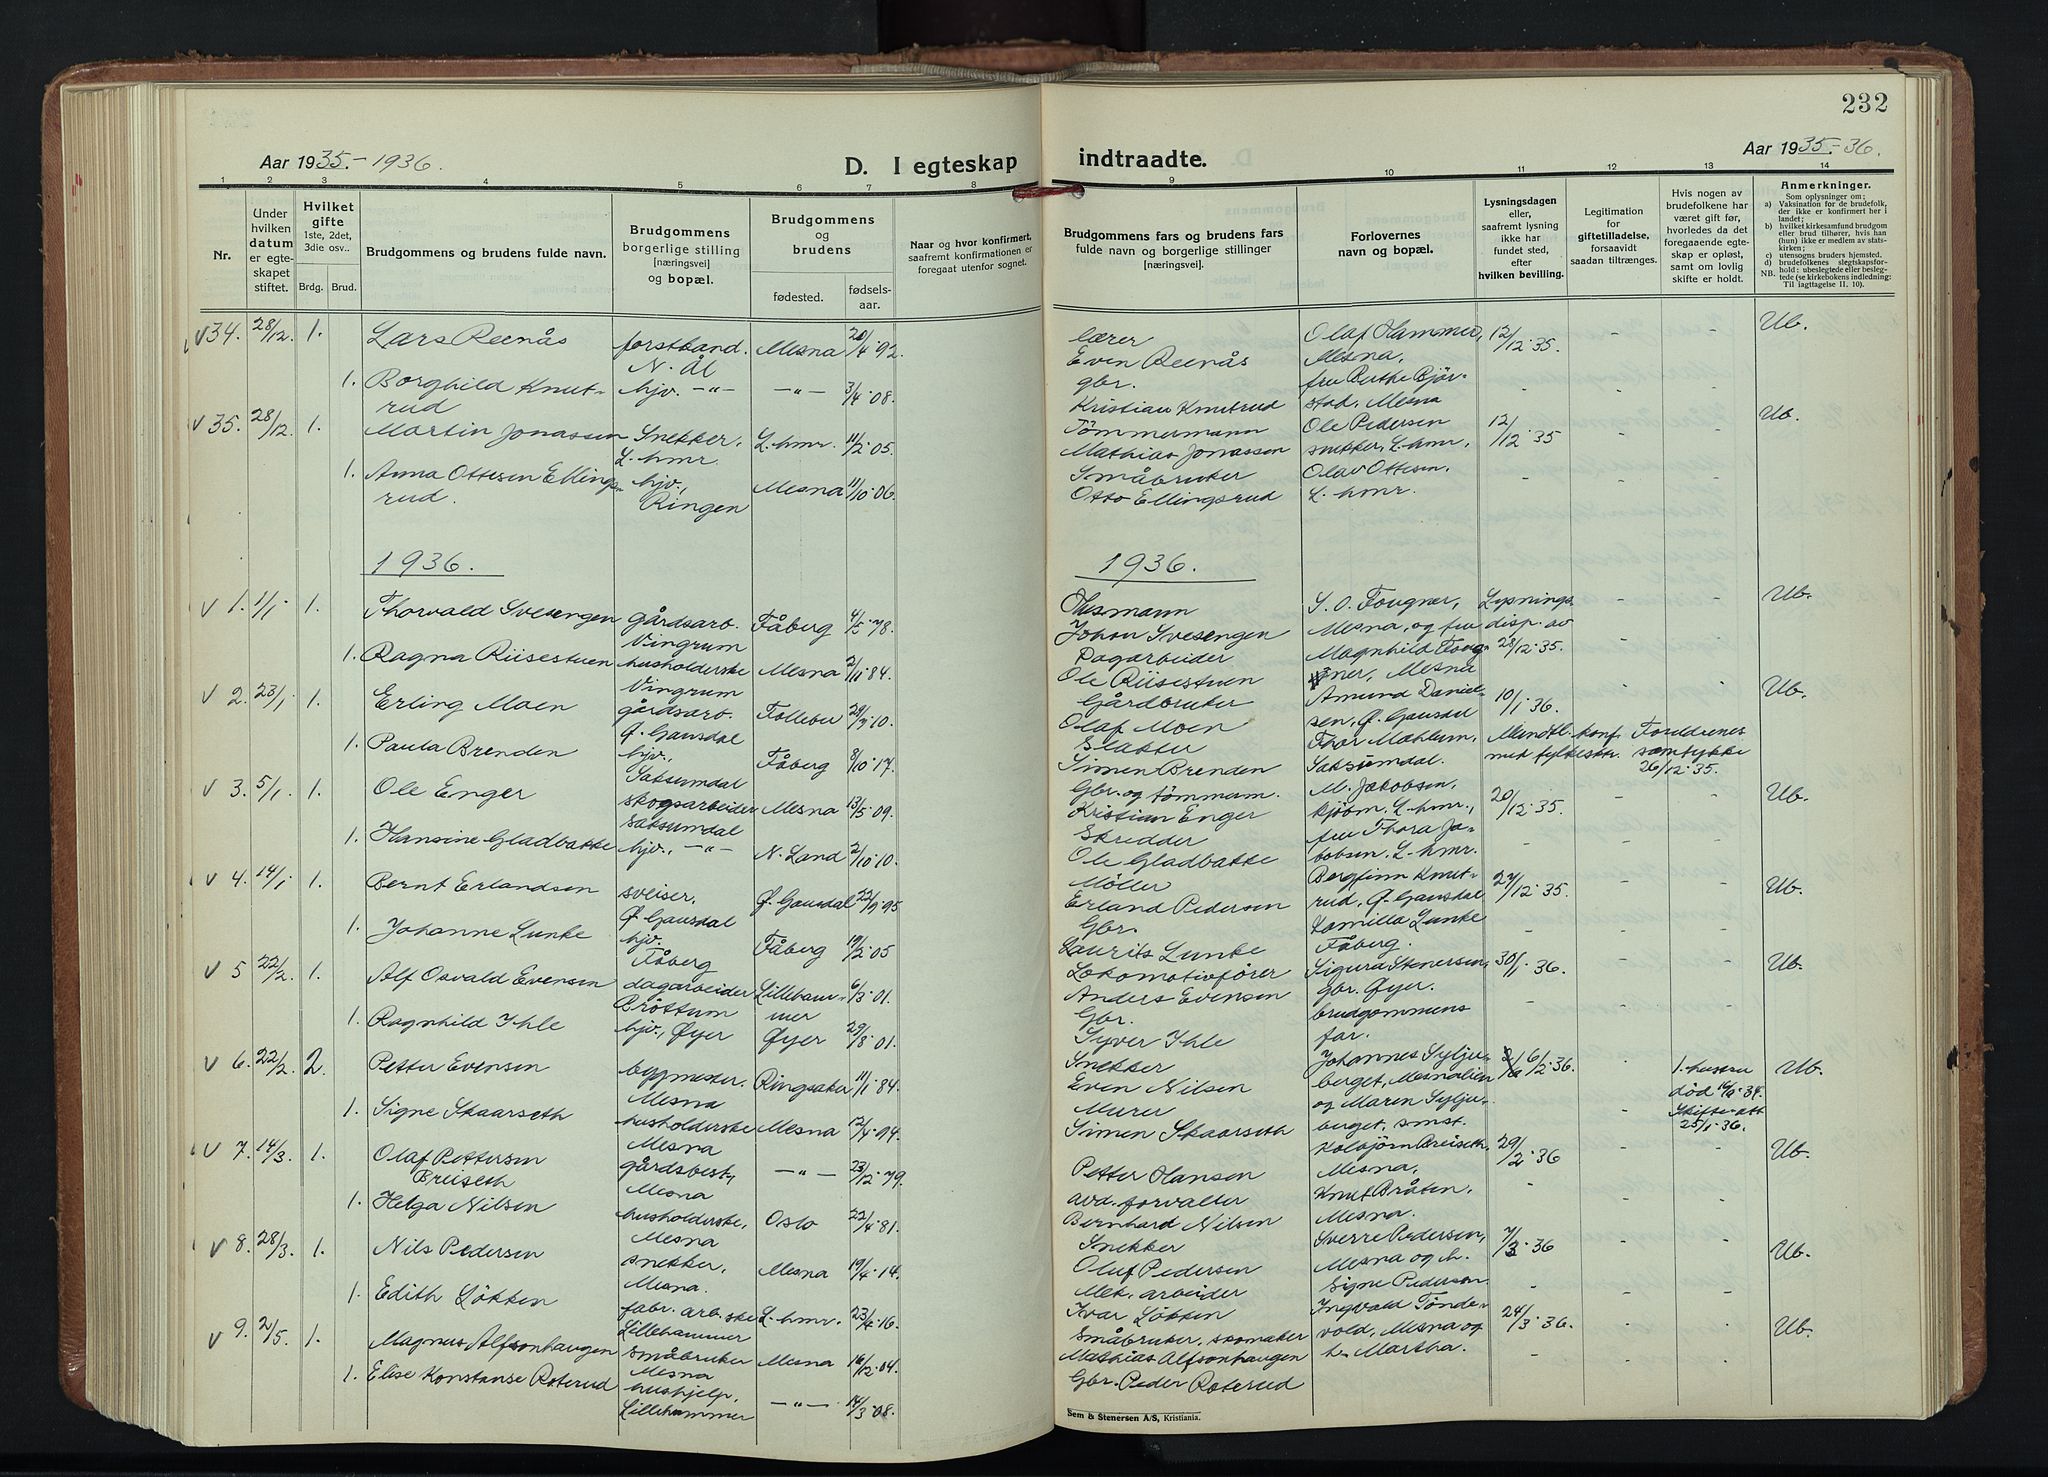 232
Aar 1935-1936.
D. I egteskap
indtraadte.
Aar 1935-36.
1 2 3 4 5 6 7 8 9 10 11 12 13 14
Nr.
Under hvilken datum er egteskapet stiftet.
Hvilket gifte 1ste, 2det, 3die osv..
Brdg. Brud.
Brudgommens og brudens fulde navn.
Brudgommens borgerlige stilling [næringsvei] og bopæl.
Brudgommens og brudens
fødested. fødselsaar.
Naar og hvor konfirmert, saafremt konfirmationen er foregaat utenfor sognet.
Brudgommens fars og brudens fars fulde navn og borgerlige stillinger [næringsvei].
Forlovernes navn og bopæl.
Lysningsdagen eller, saafremt lysning ikke har fundet sted, efter hvilken bevilling.
Legitimation for giftetilladelse, forsaavidt saadan tiltrænges.
Hvis nogen av brudefolkene har været gift før, hvorledes da det foregaaende egteskap er opløst, samt om lovlig skifte er holdt.
Anmerkninger.
Som oplysning om;
a) Vaksination for de brudefolk, der ikke er konfirmert her i landet;
b) hvilket kirkesamfund brudgom eller brud tilhører, hvis han (hun) ikke er medlem av statskirken;
c) utensogns bruders hjemsted.
d) brudefolkenes slegtskapsforhold: ubeslegtede eller beslegtede (se kirkebokens indledning: Til iagttagelse II. 10).
NB.
v 34. 28/12. 1. Lars Reenås forstkand. N. Ål Mesna 20/4-92. lærer Even Reenås Olaf Hammer, Mesna, 12/12-35. - - Ub.
1. Borghild Knutrud hjv. -"- -"- 3/4-08. gbr. Kristian Knutrud fru Berthe Bjørstad, Mesna - - -
v 35. 28/12. 1. Martin Jonassen Snekker, L.hmr. L.hmr. 11/2-05. Tömmermann Mathias Jonassen Ole Pedersen snekker, L.hmr. 12/12-35 - - Ub.
1. Anna Ottesen Ellingsrud. hjv., Ringen Mesna 11/10-06. Småbruker Otto Ellingsrud Olav Ottesen. L.hmr. - - -
1936. 1936.
v 1. 1/1. 1. Thorvald Svesengen gårdsarb. Vingrum Fåberg 4/5-78. Husmann Johan Svesengen S. O. Fougner, Mesna, og fru Lysnings disp. av 28/12-35. - - Ub.
1. Ragna Riisestuen husholderske Vingrum Mesna 2/11-84. Dagarbeider Ole Riisestuen Magnhild Fougner, Mesna - -
v 2. 23/1. 1. Erling Moen gårdsarb. Ø. Gausdal Follebu 28/3-10. Gårdbruker Olaf Moen Amund Danielsen, Ø. Gausdal 10/1-36. - - Ub.
1. Paula Brenden hjv., Saksumdal Fåberg 8/10-17. Slakter Simen Brenden Thor Mæhlum, Saksumdal. Mundtl. konf. med fylkesktr. Foreldrenes samtykke 26/12-35.
v 3. 5/1. 1. Ole Enger skogsarbeider Saksumdal Mesna 13/5-09. Gbr. og tömmerm. Kristian Enger M. Jakobsen, kjøbm, L.hmr., 20/12-35. - - Ub.
1. Hansine Gladbakke hjv., -"- N. Land 2/10-10. Skredder Ole Gladbakke fru Thora Jakobsen, L.hmr. - - -
v 4. 14/1. 1. Bernt Erlandsen sveiser. Ø. Gausdal Ø. Gausdal 22/9-95 Möller Erland Pedersen Bergfinn Knutrud, Ø. Gausdal 27/12-35. - - Ub.
1. Johanne Lunke hjv. Fåberg Fåberg 19/2-05 Gbr. Laurits Lunke Kamilla Lunke Fåberg. - - -
v 5 22/2. 1. Alf Osvald Evensen dagarbeider Bröttum Lillehammer 6/3-01. Lokomotivfører Anders Evensen Sigurd Stenersen, gbr. Øyer. 30/1-36. - - Ub.
1. Ragnhild Ihle hjv., Øyer Øyer 29/8-01. Gbr. Syver Ihle brudgommens far. - - -
v 6. 22/2. 2. Petter Evensen bygmester. Mesna Ringsaker 11/1-84. Snekker Even Nilsen Johannes Syljuberget, Mesnalien 6/2-36. - 1. hustru død 16/9-34. Skifte-att 25/1-36. Ub.
1. Signe Skaarseth husholderske Mesna Mesna 12/4-94. Murer Simen Skaarseth og Maren Syljuberget, smst. -
v 7. 14/3. 1. Olaf Pettersen Briiseth gårdsbest, Mesna -"- 23/12-79. Petter Hansen Kolbjørn Briiseth, Mesna, 29/2-36 - - Ub.
1. Helga Nilsen husholderske, Mesna Oslo 22/4-81. avd. forvalter Bernhard Nilsen Knut Bråten, Mesna. - - -
v 8. 28/3. 1. Nils Pedersen snekker, Mesna. Mesna 19/4-14. Snekker Oluf Pedersen Sverre Pedersen, Mesna og h. 7/3-36 - - Ub.
1. Edith Løkken fabr. arb.ske Lillehammer L.hmr. 23/4-16. Mek. arbeider Ivar Løkken Signe Pedersen - - -
v 9. 2/5. 1. Magnus Alfsonhaugen småbruker Mesna Mesna 16/2-04. Småbruker, skomaker Mathias Alfsonhaugen Ingvald Tøndevold, Mesna og h. Martha. 24/3-36. - - Ub.
1. Elise Konstanse Roterud hushjelp, Lillehammer -"- 14/3-08. Gbr. Peder Roterud - - -
Sem & Stenersen A/S, Kristiania.